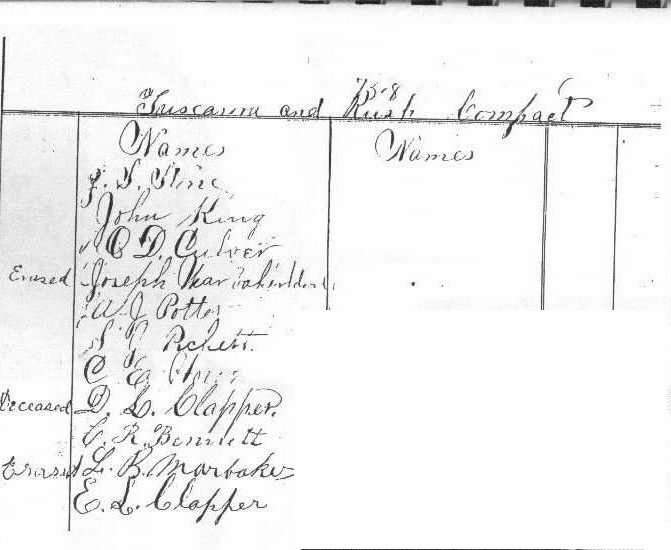 738
Tuscarora and Rush Compact
Names Names
J. S. Kline
John King
C D. Culver
Erased Joseph
A J Potter
S Pickett.
C E
Deceased D. L. Clapper.
C. R. Bennett
Erased L. B. Marbaker
E. L. Clapper